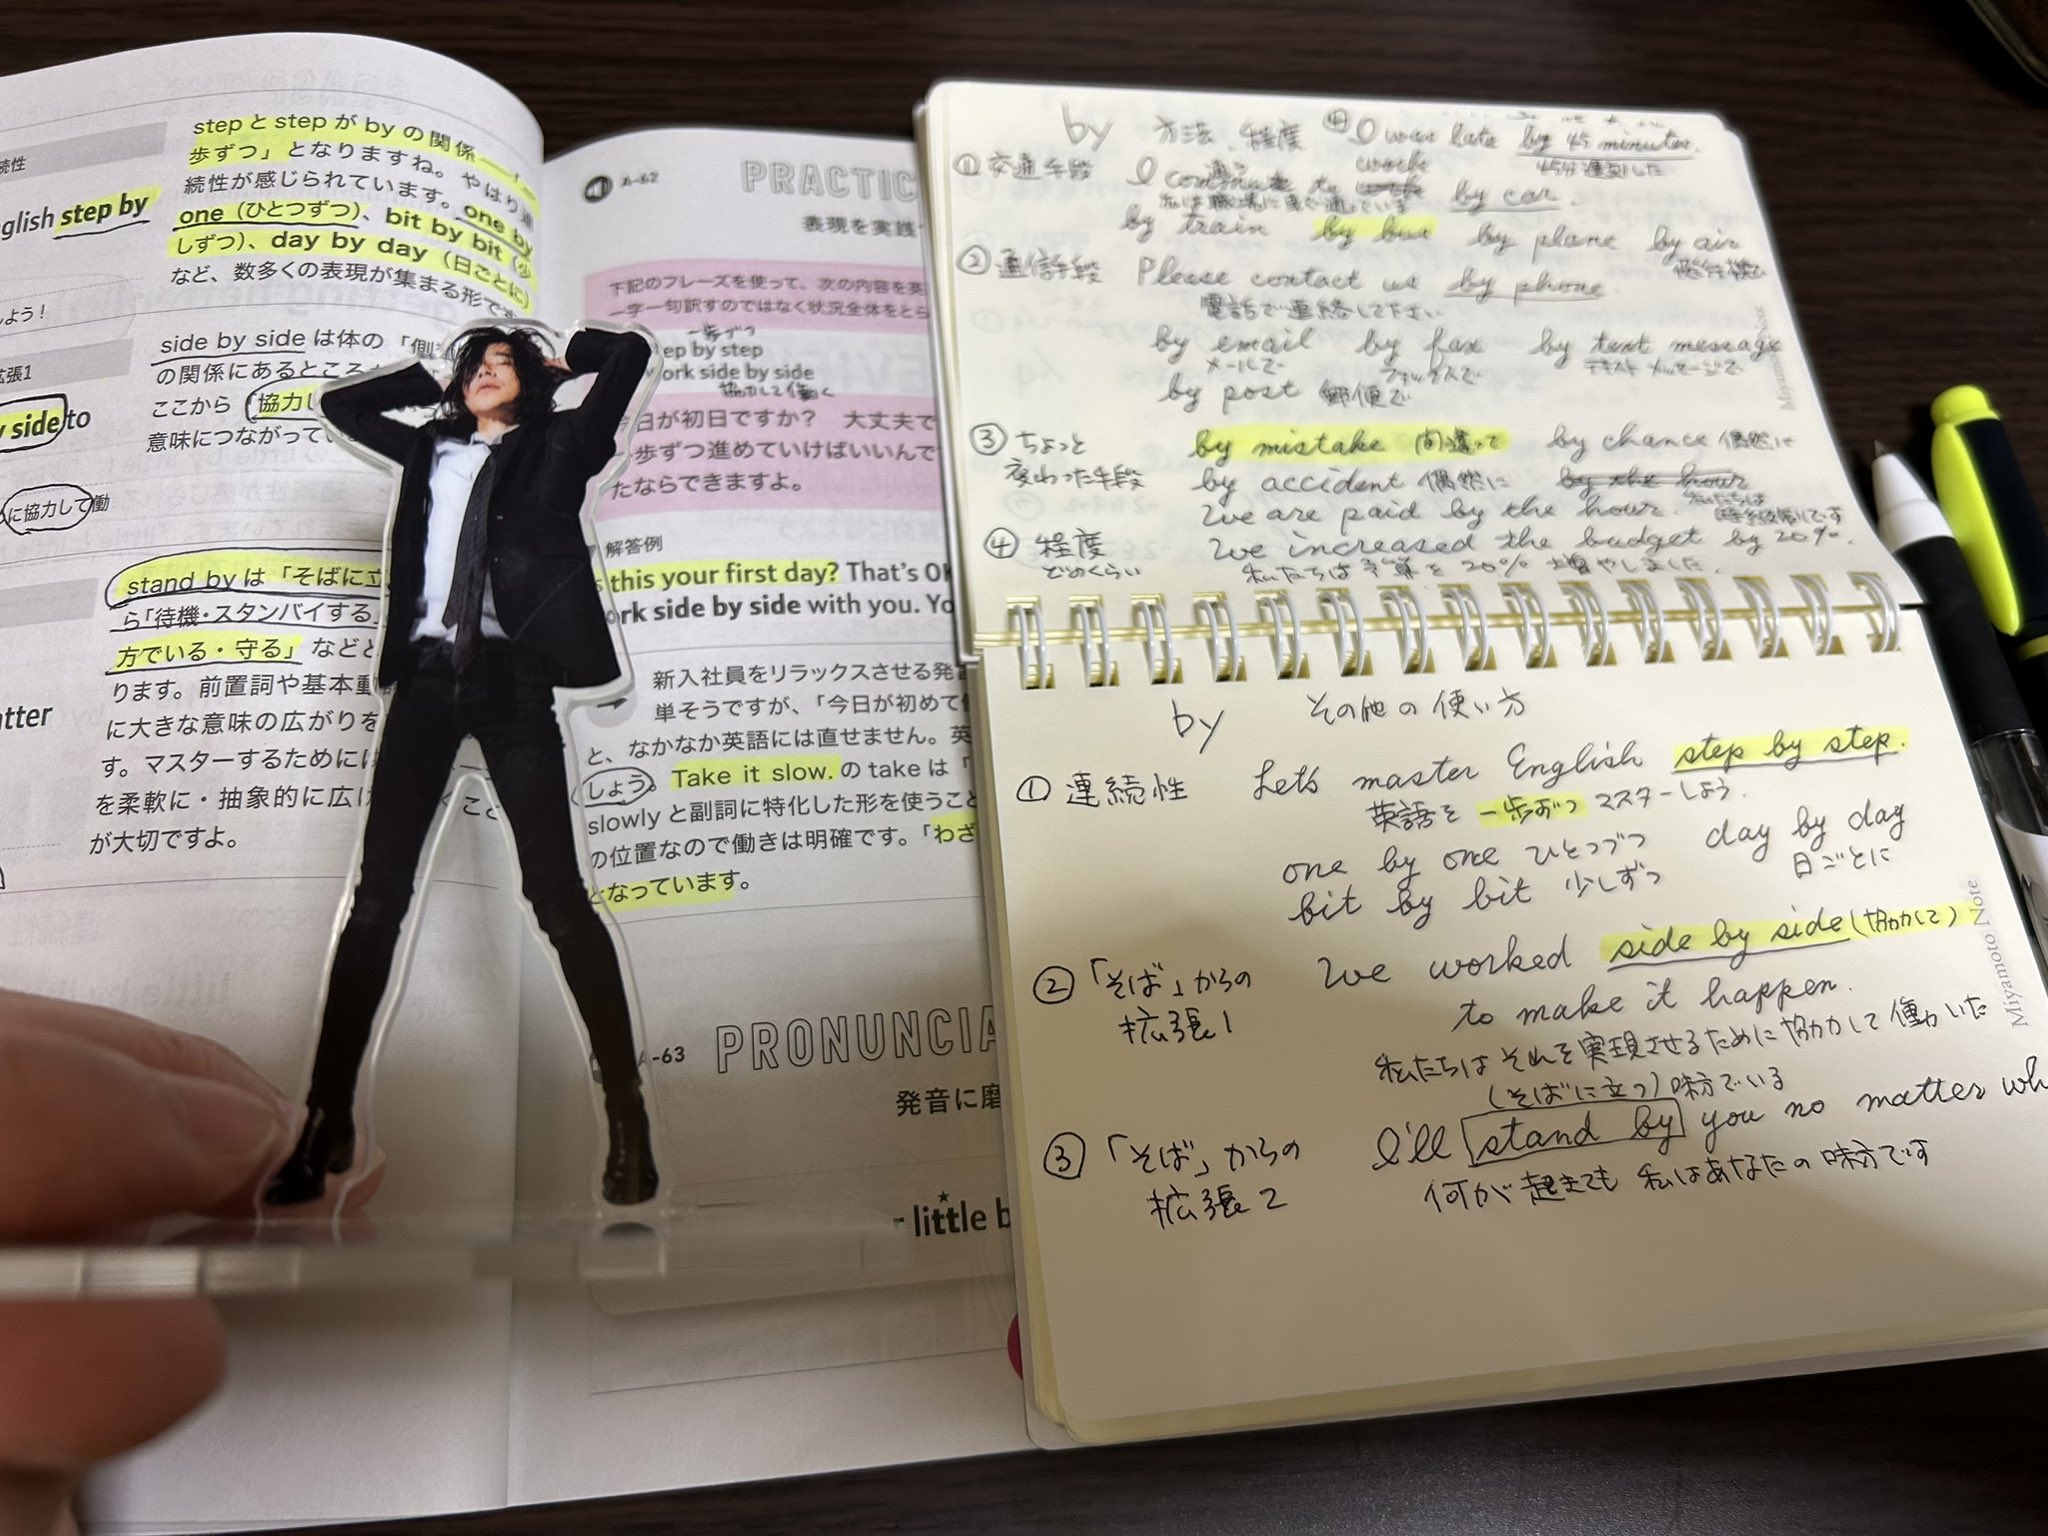 続性
nglish step by
よう！
拡張1
y side to
に協力して働
atter
stepとstepがbyの関係―「一
歩ずつ」となりますね。やはり連
続性が感じられています。one by
one（ひとつずつ）、bit by bit（少
しずつ）、day by day（日ごとに）
など、数多くの表現が集まる形です
side by sideは体の「側
の関係にあるところか
ここから「協力し
意味につながってい
stand byは「そばに立
ら「待機・スタンバイする」
方でいる・守る」などと
ります。前置詞や基本動
に大きな意味の広がりを
す。マスターするためには
を柔軟に・抽象的に広げ くこと
が大切ですよ。
A-62
PRACTIC
表現を実践
下記のフレーズを使って、次の内容を英
一字一句訳すのではなく状況全体をとら
一歩ずつ
ep by step
ork side by side
協力して働く
日が初日ですか？ 大丈夫で
歩ずつ進めていけばいいんで
たならできますよ。
解答例
s this your first day? That's OK
ork side by side with you. Yo
新入社員をリラックスさせる発
単そうですが、「今日が初めて
と、なかなか英語には直せません。英
しょう。Take it slow.のtakeは「
slowlyと副詞に特化した形を使うこと
の位置なので働きは明確です。「わざ
となっています。
A-63
PRONUNCIA
発音に磨
r little b
by 方法、程度 ④ I was late by 45 minutes.
45分遅刻した
① 交通手段 I commute to work by car.
通う
私は職場に車で通っています
by train by bus by plane by air
飛行機で
② 通信手段 Please contact us by phone.
電話で連絡して下さい
by email by fax by text message
メールで ファックスで テキストメッセージで
by post 郵便で
③ ちょっと by mistake 間違って by chance 偶然に
変わった手段 by accident 偶然に by the hour
We are paid by the hour. 私たちは
時給制です
④ 程度 We increased the budget by 20%.
どのくらい 私たちは予算を20%増やしました.
Miyamoto Note
by その他の使い方
① 連続性 Let's master English step by step.
英語を一歩ずつマスターしよう.
one by one ひとつづつ day by day
bit by bit 少しずつ 日ごとに
② 「そば」からの We worked side by side (協力して)
拡張1 to make it happen.
私たちはそれを実現させるために協力して働いた
(そばに立つ) 味方でいる
③ 「そば」からの I'll stand by you no matter wh
拡張2 何が起きても私はあなたの味方です
Miyamoto Note